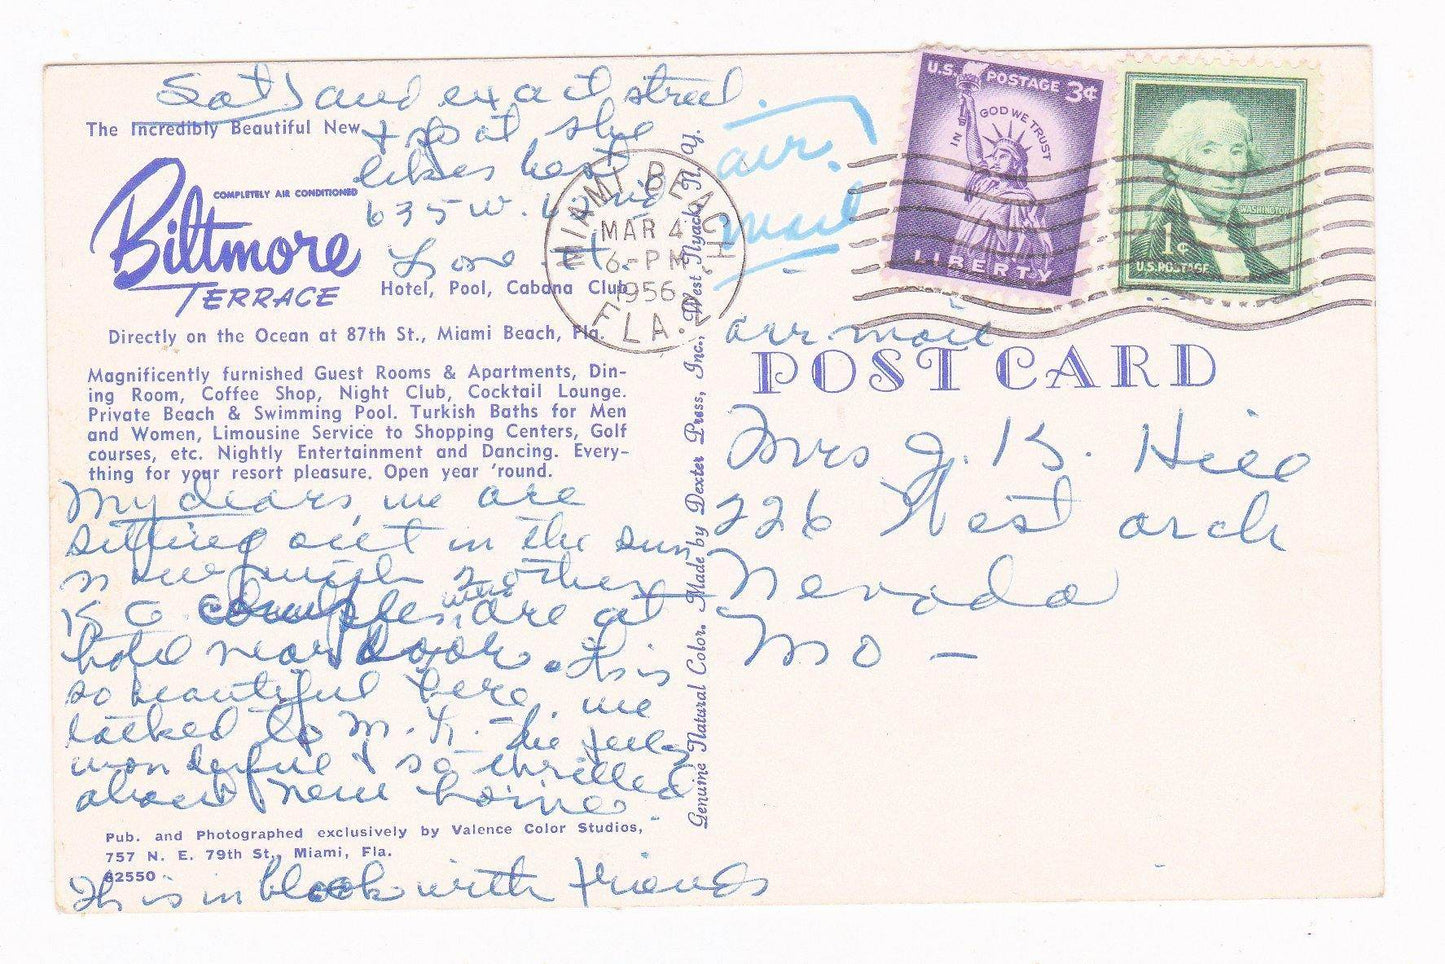 and exact street
The Incredibly Beautiful New
& spot she
likes best
COMPLETELY AIR CONDITIONED
Biltmore
TERRACE
635 W.
Love
Hotel, Pool, Cabana Club
Directly on the Ocean at 87th St., Miami Beach, Fla.
Magnificently furnished Guest Rooms & Apartments, Din-
ing Room, Coffee Shop, Night Club, Cocktail Lounge.
Private Beach & Swimming Pool. Turkish Baths for Men
and Women, Limousine Service to Shopping Centers, Golf
courses, etc. Nightly Entertainment and Dancing. Every-
thing for your resort pleasure. Open year 'round.
My dears, we are
sitting out in the sun
now with 2 other
K C couples, we are at
hotel near
This is
so beautiful here, we
talked to M. K. She feels
wonderful & so thrilled
about new home
Pub. and Photographed exclusively by Valence Color Studios,
757 N. E. 79th St., Miami, Fla.
62550
This is in block with friends
Genuine Natural Color. Made by Dexter Press, Inc., West Nyack, N. Y.
MIAMI BEACH
MAR 4
6-PM
1956
FLA.
air
mail
U.S. POSTAGE 3¢
IN GOD WE TRUST
LIBERTY
WASHINGTON
1¢
U.S. POSTAGE
air mail
POST CARD
Mrs J. K. Hill
226 West arch
Nevada
Mo -